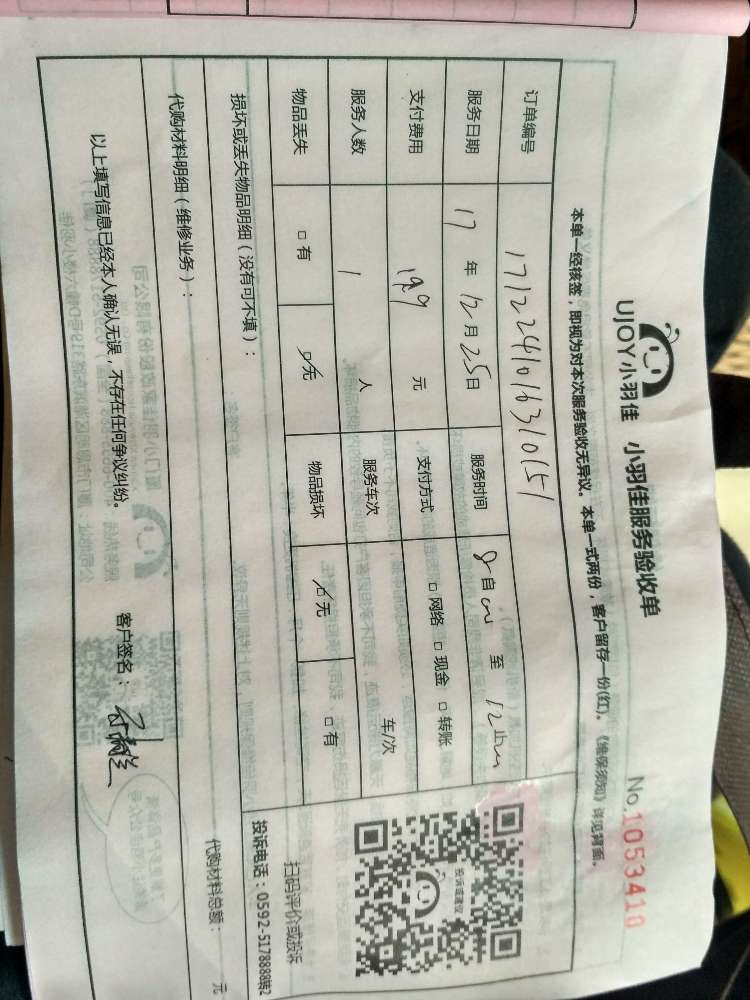 UJOY小羽佳 小羽佳服务验收单 No.1053410
本单一经核签，即视为对本次服务验收无异议。本单一式两份，客户留存一份(红)。《维保须知》详见背面。
订单编号 1712241016310151
服务日期 17 年 12 月 25 日 服务时间 8 自 至 12 止
支付费用 199 元 支付方式 □ 网络 □ 现金 □ 转账
服务人数 1 人 服务车次 车/次
物品丢失 □ 有 □ 无 物品损坏 □ 无 □ 有
投诉或建议
扫码评价或投诉
投诉电话：0592-5178888转2
损坏或丢失物品明细（没有可不填）：
代购材料明细（维修业务）：
代购材料总额： 元
以上填写信息已经本人确认无误，不存在任何争议纠纷。 客户签名：